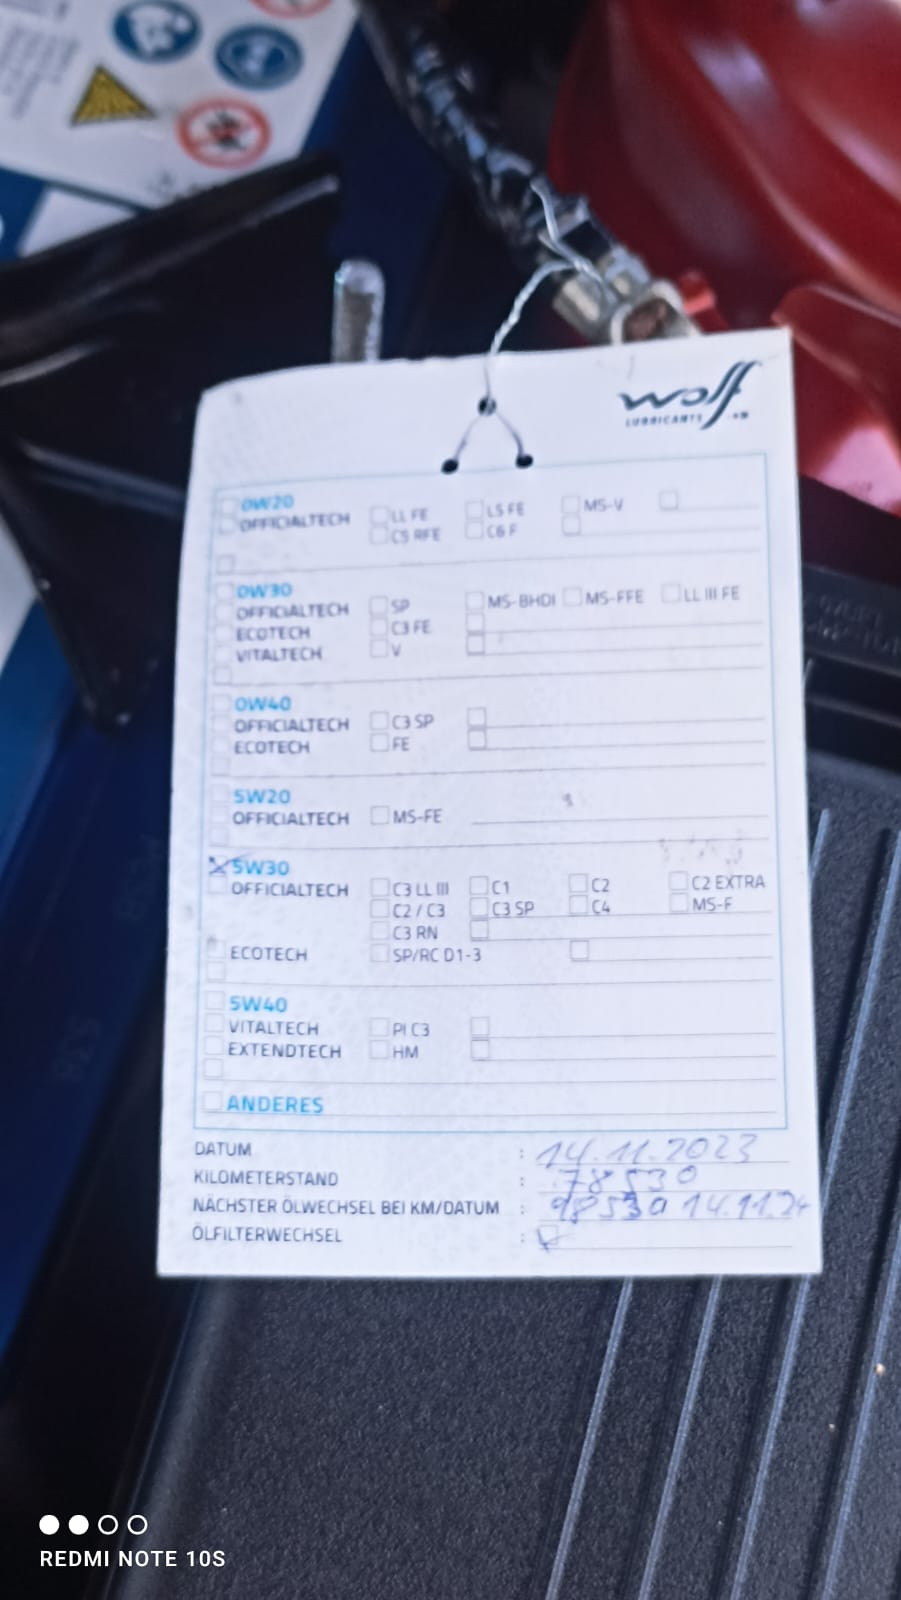 wolf
LUBRICANTS
0W20
OFFICIALTECH LL FE LS FE MS-V
C5 RFE C6 F
0W30
OFFICIALTECH SP MS-BHDI MS-FFE LL III FE
ECOTECH C3 FE
VITALTECH V
0W40
OFFICIALTECH C3 SP
ECOTECH FE
5W20
OFFICIALTECH MS-FE
5W30
OFFICIALTECH C3 LL III C1 C2 C2 EXTRA
C2 / C3 C3 SP C4 MS-F
C3 RN
ECOTECH SP/RC D1-3
5W40
VITALTECH PI C3
EXTENDTECH HM
ANDERES
DATUM : 14.11.2023
KILOMETERSTAND : 78530
NÄCHSTER ÖLWECHSEL BEI KM/DATUM : 98530 14.11.24
ÖLFILTERWECHSEL :
REDMI NOTE 10S